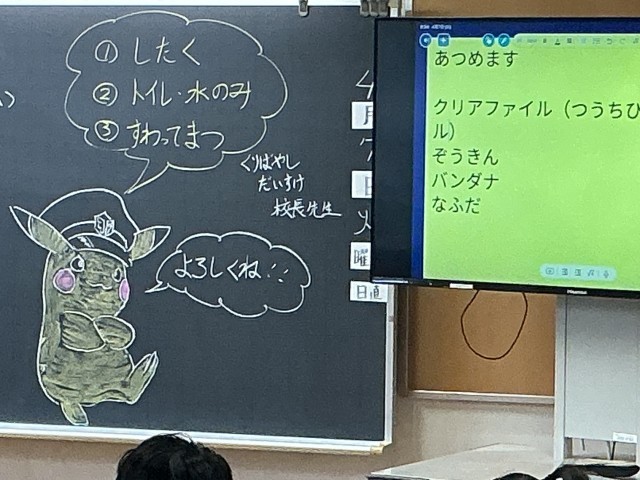 ① したく
② トイレ・水のみ
③ すわってまつ
くりばやし
だいすけ
校長先生
よろしくね!!
月
日
曜
日直
あつめます
クリアファイル（つうちひ
ル）
ぞうきん
バンダナ
なふだ
Hisense